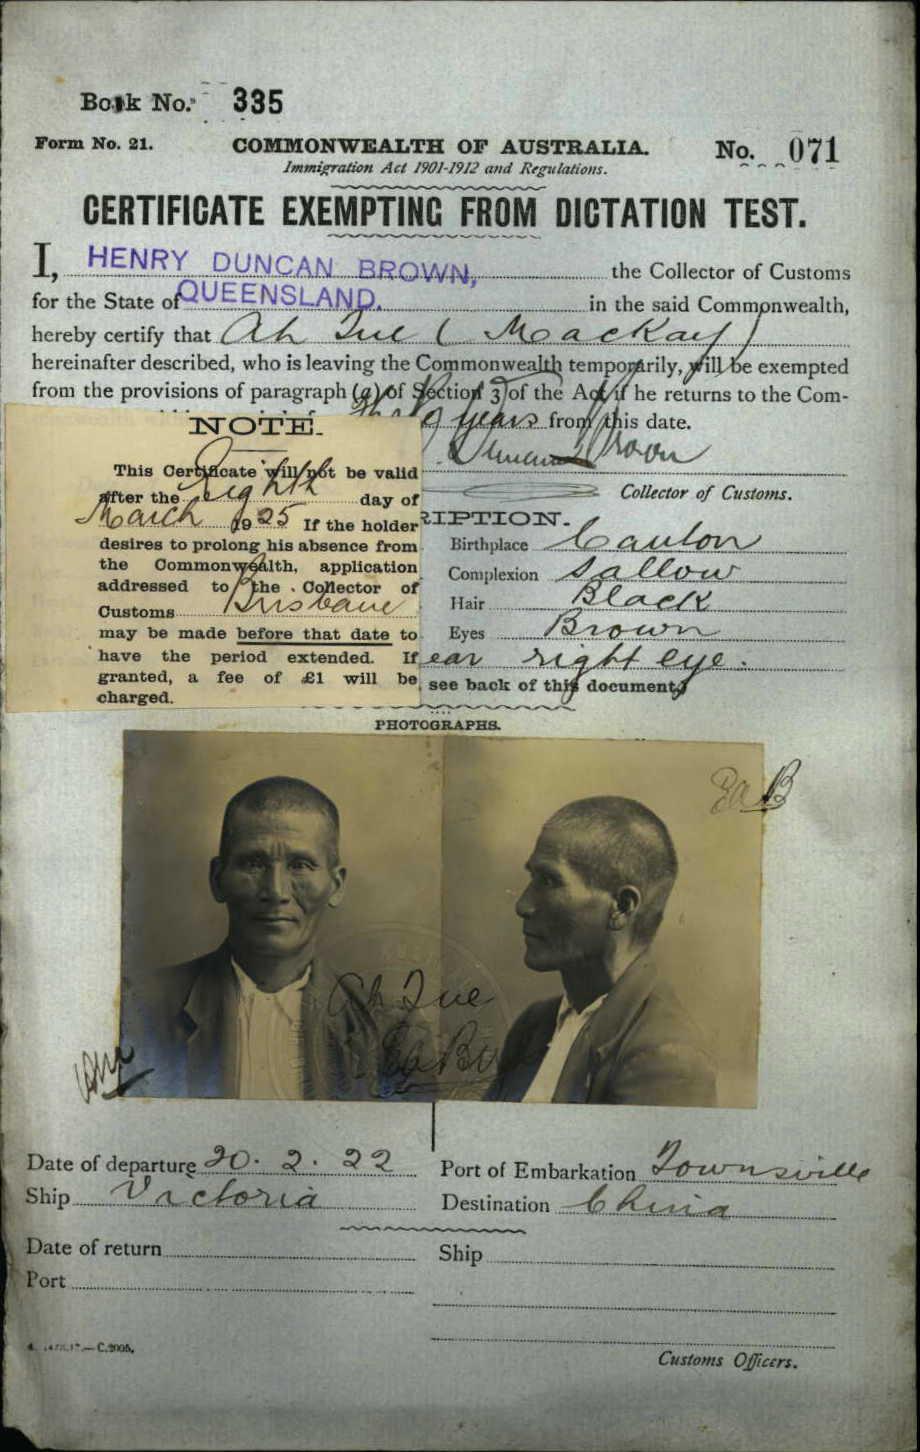 Book No. 335
Form No. 21. COMMONWEALTH OF AUSTRALIA. No. 071
Immigration Act 1901-1912 and Regulations.
CERTIFICATE EXEMPTING FROM DICTATION TEST.
I, HENRY DUNCAN BROWN, the Collector of Customs
for the State of QUEENSLAND. in the said Commonwealth,
hereby certify that Ah Tue (Mackay)
hereinafter described, who is leaving the Commonwealth temporarily, will be exempted
from the provisions of paragraph (a) of Section 3 of the Act if he returns to the Com-
years from this date.
Duncan Brown
Collector of Customs.
NOTE.
This Certificate will not be valid
after the Eighth day of
March 1925 If the holder
desires to prolong his absence from
the Commonwealth, application
addressed to the Collector of
Customs Brisbane
may be made before that date to
have the period extended. If
granted, a fee of £1 will be
charged.
RIPTION.
Birthplace Canton
Complexion Sallow
Hair Black
Eyes Brown
ear right eye.
see back of this document
PHOTOGRAPHS.
Ah Tue
Date of departure 20. 2. 22 Port of Embarkation Townsville
Ship Victoria Destination China
Date of return Ship
Port
C.2005.
Customs Officers.